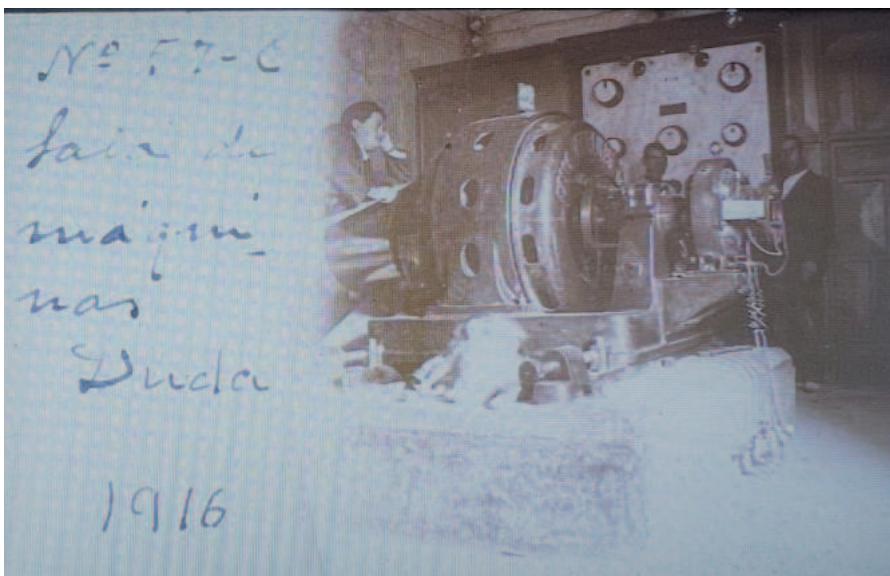 Nº 57-C
Sala de
máqui-
nas
Duda
1916